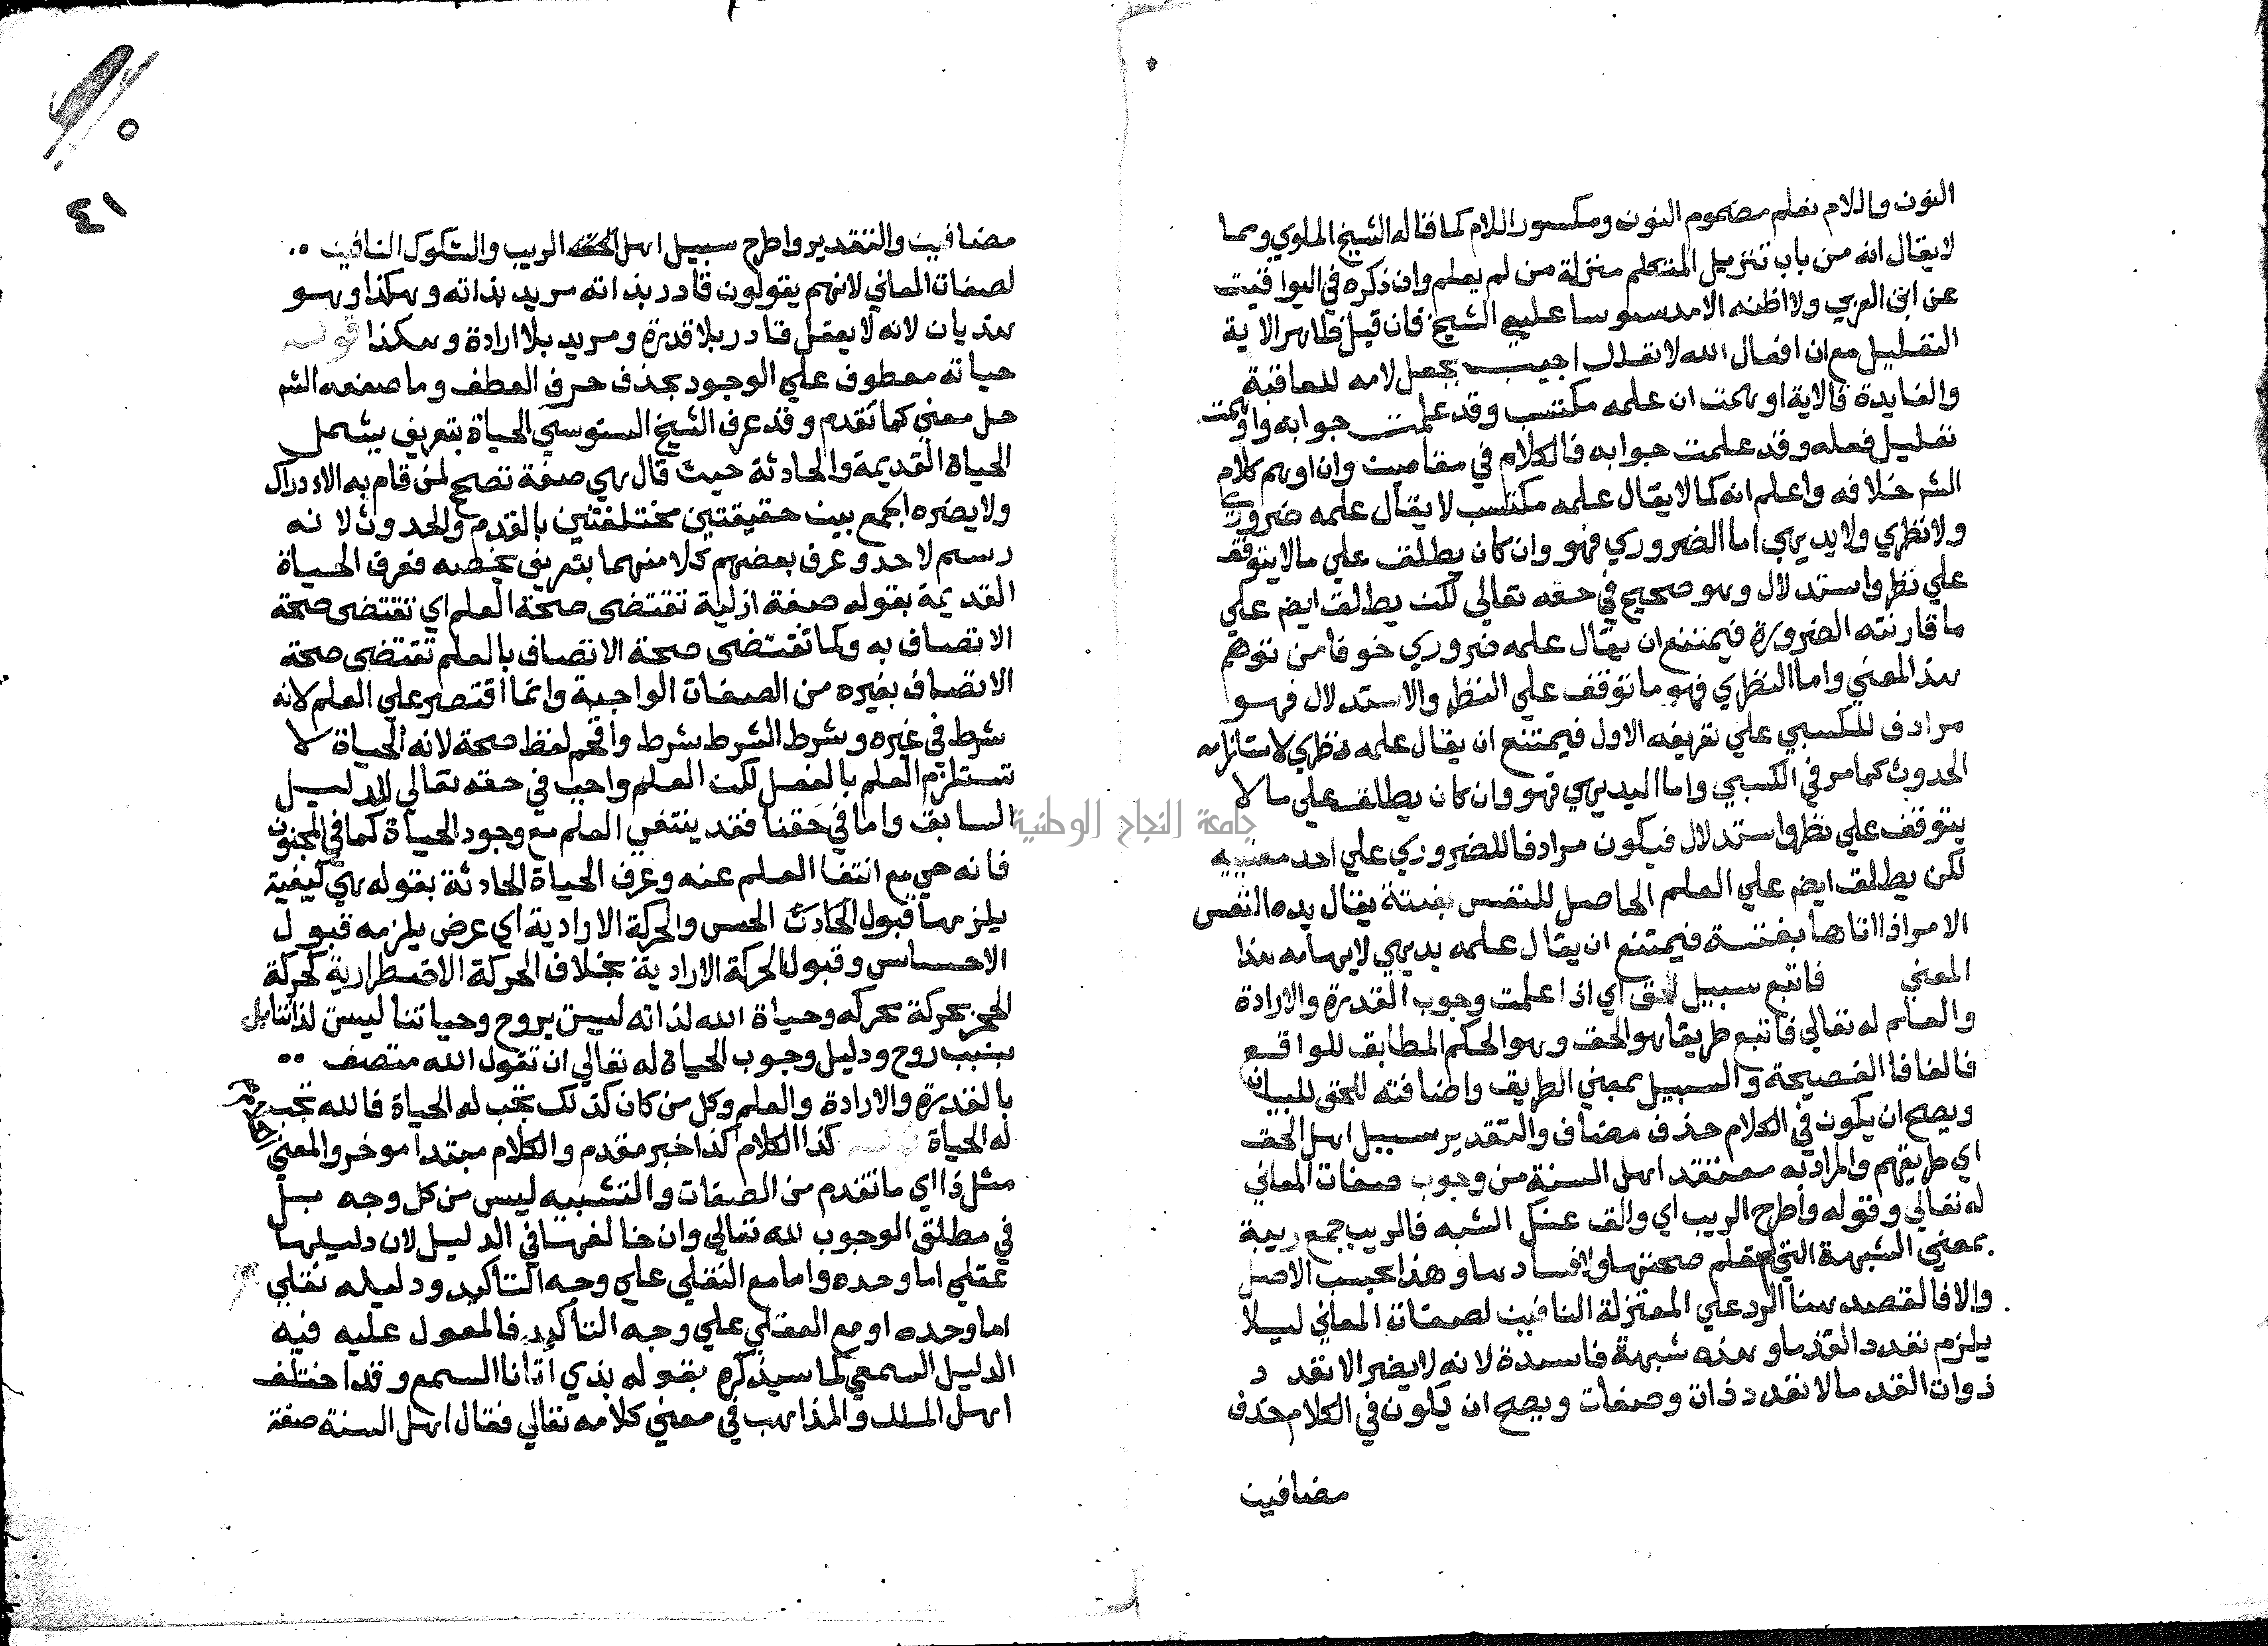 النون واللام نعلم مضموم النون ومكسور اللام كما قاله الشيخ الملوي ومما
لا يقال انه من باب تنزيل المتكلم منزلة من لم يعلم وان ذكره في اليواقيت
عن ابن العربي ولا اظنه الا مدسوسا عليه الشيخ فان قيل ظاهر الاية
التعليل مع ان افعال الله لا تعلل اجيب بجعل لامه للعاقبة
والفايدة فالاية اوهمت ان علمه مكتسب وقد علمت جوابه واوهمت
تعليل فعله وقد علمت جوابه فالكلام في مقامين وان اوهم كلام
الشر خلافه واعلم انه كما لا يقال علمه مكتسب لا يقال علمه ضروري
ولا نظري ولا بديهي اما الضروري فهو وان كان يطلق علي مالا يتوقف
علي نظر واستدلال وهو صحيح في حقه تعالي لكن يطلق ايض علي
ما قارنته الضرورة فيمتنع ان يقال علمه ضروري خوفا من توهم
هذا المعني واما النظري فهو ما توقف علي النظر والاستدلال فهو
مرادف للكسبي علي تعريفه الاول فيمتنع ان يقال علمه نظري لاستلزامه
الحدوث كما مر في الكسبي واما البديهي فهو وان كان يطلق علي ما لا
يتوقف علي نظر واستدلال فيكون مرادفا للضروري علي احد معنييه
لكن يطلق ايض علي العلم الحاصل للنفس بغتة يقال بده النفس
الامر اذا اتاها بغتة فيمتنع ان يقال علمه بديهي لايهامه هذا
المعني فاتبع سبيل الحق اي اذا علمت وجوب القدرة والارادة
والعلم له تعالي فاتبع طريقا هو الحق وهو الحكم المطابق للواقع
فالفا فا الفصيحة والسبيل بمعني الطريق واضافته للحق للبيان
ويصح ان يكون في الكلام حذف مضاف والتقدير سبيل اهل الحق
اي طريقهم والمراد به معتقد اهل السنة من وجوب صفات المعاني
له تعالي وقوله واطرح الريب اي والق عنك الشبه فالريب جمع ريبة
بمعني الشبهة التي لم تعلم صحتها ولا فسادها وهذا بحسب الاصل
والا فالقصد هنا الرد علي المعتزلة النافين لصفات المعاني ليلا
يلزم تعدد القدما وهذه شبهة فاسدة لانه لا يضر الا تعدد
ذوات القدما لا تعدد ذات وصفات ويصح ان يكون في الكلام حذف
مضافين
٤١
مضافين والتقدير واطرح سبيل اهل الريب والشكوك النافين
لصفات المعاني لانهم يقولون قادر بذاته مريد بذاته وهكذا وهو
هذيان لانه لا يعقل قادر بلا قدرة ومريد بلا ارادة وهكذا قوله
حياته معطوف علي الوجود بحذف حرف العطف وما صنعه الشر
حل معني كما تقدم وقد عرف الشيخ السنوسي الحياة بتعريف يشمل
الحياة القديمة والحادثة حيث قال هي صفة تصحح لمن قام به الادراك
ولا يضره الجمع بين حقيقتين مختلفتين بالقدم والحدوث لانه
رسم لاحد وعرف بعضهم كلا منهما بتعريف يخصه فعرف الحياة
القديمة بقوله صفة ازلية تقتضي صحة العلم اي تقتضي صحة
الاتصاف به وكما تقتضي صحة الاتصاف بالعلم تقتضي صحة
الاتصاف بغيره من الصفات الواجبة وانما اقتصر علي العلم لانه
شرط في غيره وشرط الشرط شرط واقحم لفظ صحة لانه الحياة لا
تستلزم العلم بالفعل لكن العلم واجب في حقه تعالي للدليل
السابق واما في حقنا فقد ينتفي العلم مع وجود الحياة كما في المجنون
فانه حي مع انتفا العلم عنه وعرف الحياة الحادثة بقوله هي كيفية
يلزمها قبول الحادث الحس والحركة الارادية اي عرض يلزمه قبول
الاحساس وقبول الحركة الارادية بخلاف الحركة الاضطرارية كحركة
الحجز بحركة محركه وحياة الله لذاته ليست بروح وحياتنا ليست لذاتنا بل
بسبب روح ودليل وجوب الحياة له تعالي ان تقول الله متصف
بالقدرة والارادة والعلم وكل من كان كذلك تجب له الحياة فالله تجب
له الحياة كذا الكلام كذا خبر مقدم والكلام مبتدا موخر والمعني
مثل ذا اي ما تقدم من الصفات والتشبيه ليس من كل وجه بل
في مطلق الوجوب لله تعالي وان خالفها في الدليل لان دليلها
عقلي اما وحده واما مع النقلي علي وجه التاكيد ودليله نقلي
اما وحده او مع العقلي علي وجه التاكيد فالمعول عليه فيه
الدليل السمعي كما سيذكره بقوله بذي اتانا السمع وقد اختلف
اهل الملل والمذاهب في معني كلامه تعالي فقال اهل السنة صفة
جامعة النجاح الوطنية